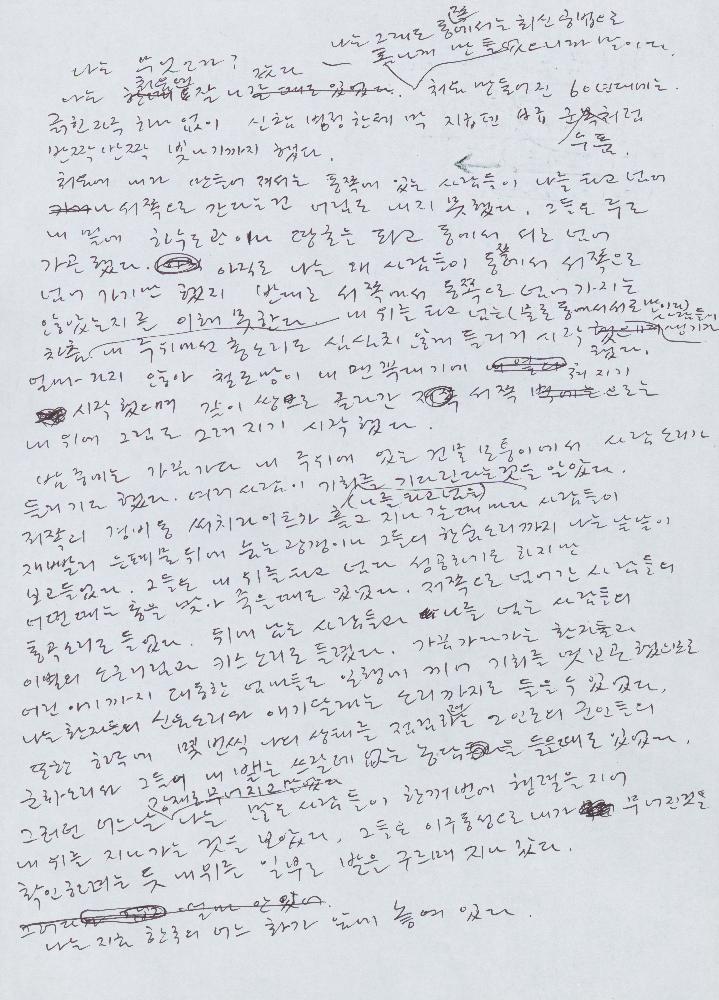 나는 그래도 동쪽에서는 최신 공법으로
나는 무엇인가? 만들었으니까 말이다.
나는 처음엔 잘 나갔다. 처음 만들어진 60년대에는
긁힌 자국 하나 없이 신참 병정한테 막 지급된 보급 군복처럼
반짝반짝 빛나기까지 했다. 수통
처음에 내가 만들어져서는 동쪽에 있는 사람들이 나를 타고 넘어
서쪽으로 간다는건 엄두도 내지 못했다. 그들은 주로
내 밑에 하수도관이나 땅굴을 파고 동에서 서로 넘어
가곤 했다. 아직도 나는 왜 사람들이 동쪽에서 서쪽으로
넘어 가기만 했지 반대로 서쪽에서 동쪽으로 넘어가지는
않았는지를 이해 못한다. 내 위를 타고 넘는 (물론 동에서 서로 만이다) 사람들이
차츰 내 주위에선 총소리도 심심치 않게 들리기 시작했다. 생기자
얼마 되지 않아 철조망이 내 맨 꼭대기에 쳐지기
시작했으며 같이 쌍으로 올라간 서쪽 으로는
내 위에 그림도 그려지기 시작했다.
밤중에는 가끔가다 내 주위에 있는 건물 모퉁이에서 사람소리가
들리기도 했다. 여러 사람이 기회를 기다린다는 것을 알았다.
(나를 타고 넘을)
저쪽의 경비용 써치라이트가 훑고 지나갈때마다 사람들이
재빨리 뒤에 숨는 광경이나 그들의 한숨소리까지 나는 낱낱이
보고 들었다. 그들은 내 위를 타고 넘다 성공하기도 하지만
어떤때는 총을 맞아 죽을때도 있었다. 저쪽으로 넘어간 사람들의
통곡소리도 들었다. 뒤에 남는 사람들과 나를 넘는 사람들의
이별의 도 키스소리도 들렸다. 가끔가다가는 환자들과
어린 아기까지 대동한 엄마들도 일행에 끼어 기회를 엿보곤 했으므로
나는 환자들의 신음소리와 애기 달래는 소리까지도 들을 수 있었다.
또한 하루에 몇번씩 나의 상태를 점검하는 2인조의 군인들의
군화소리와 그들이 내 뱉는 쓰잘데 없는 농담을 들을때도 있었다.
강제로 무너지고 만 었다
그러던 어느날 나는 많은 사람들이 한꺼번에 행렬을 지어
내 위를 지나가는 것을 보았다. 그들은 이구동성으로 내가 무너진 것을
확인하려는 듯 내 위를 일부로 발을 구르며 지나갔다.
나는 지금 한국의 어느 화가 앞에 놓여 있다.